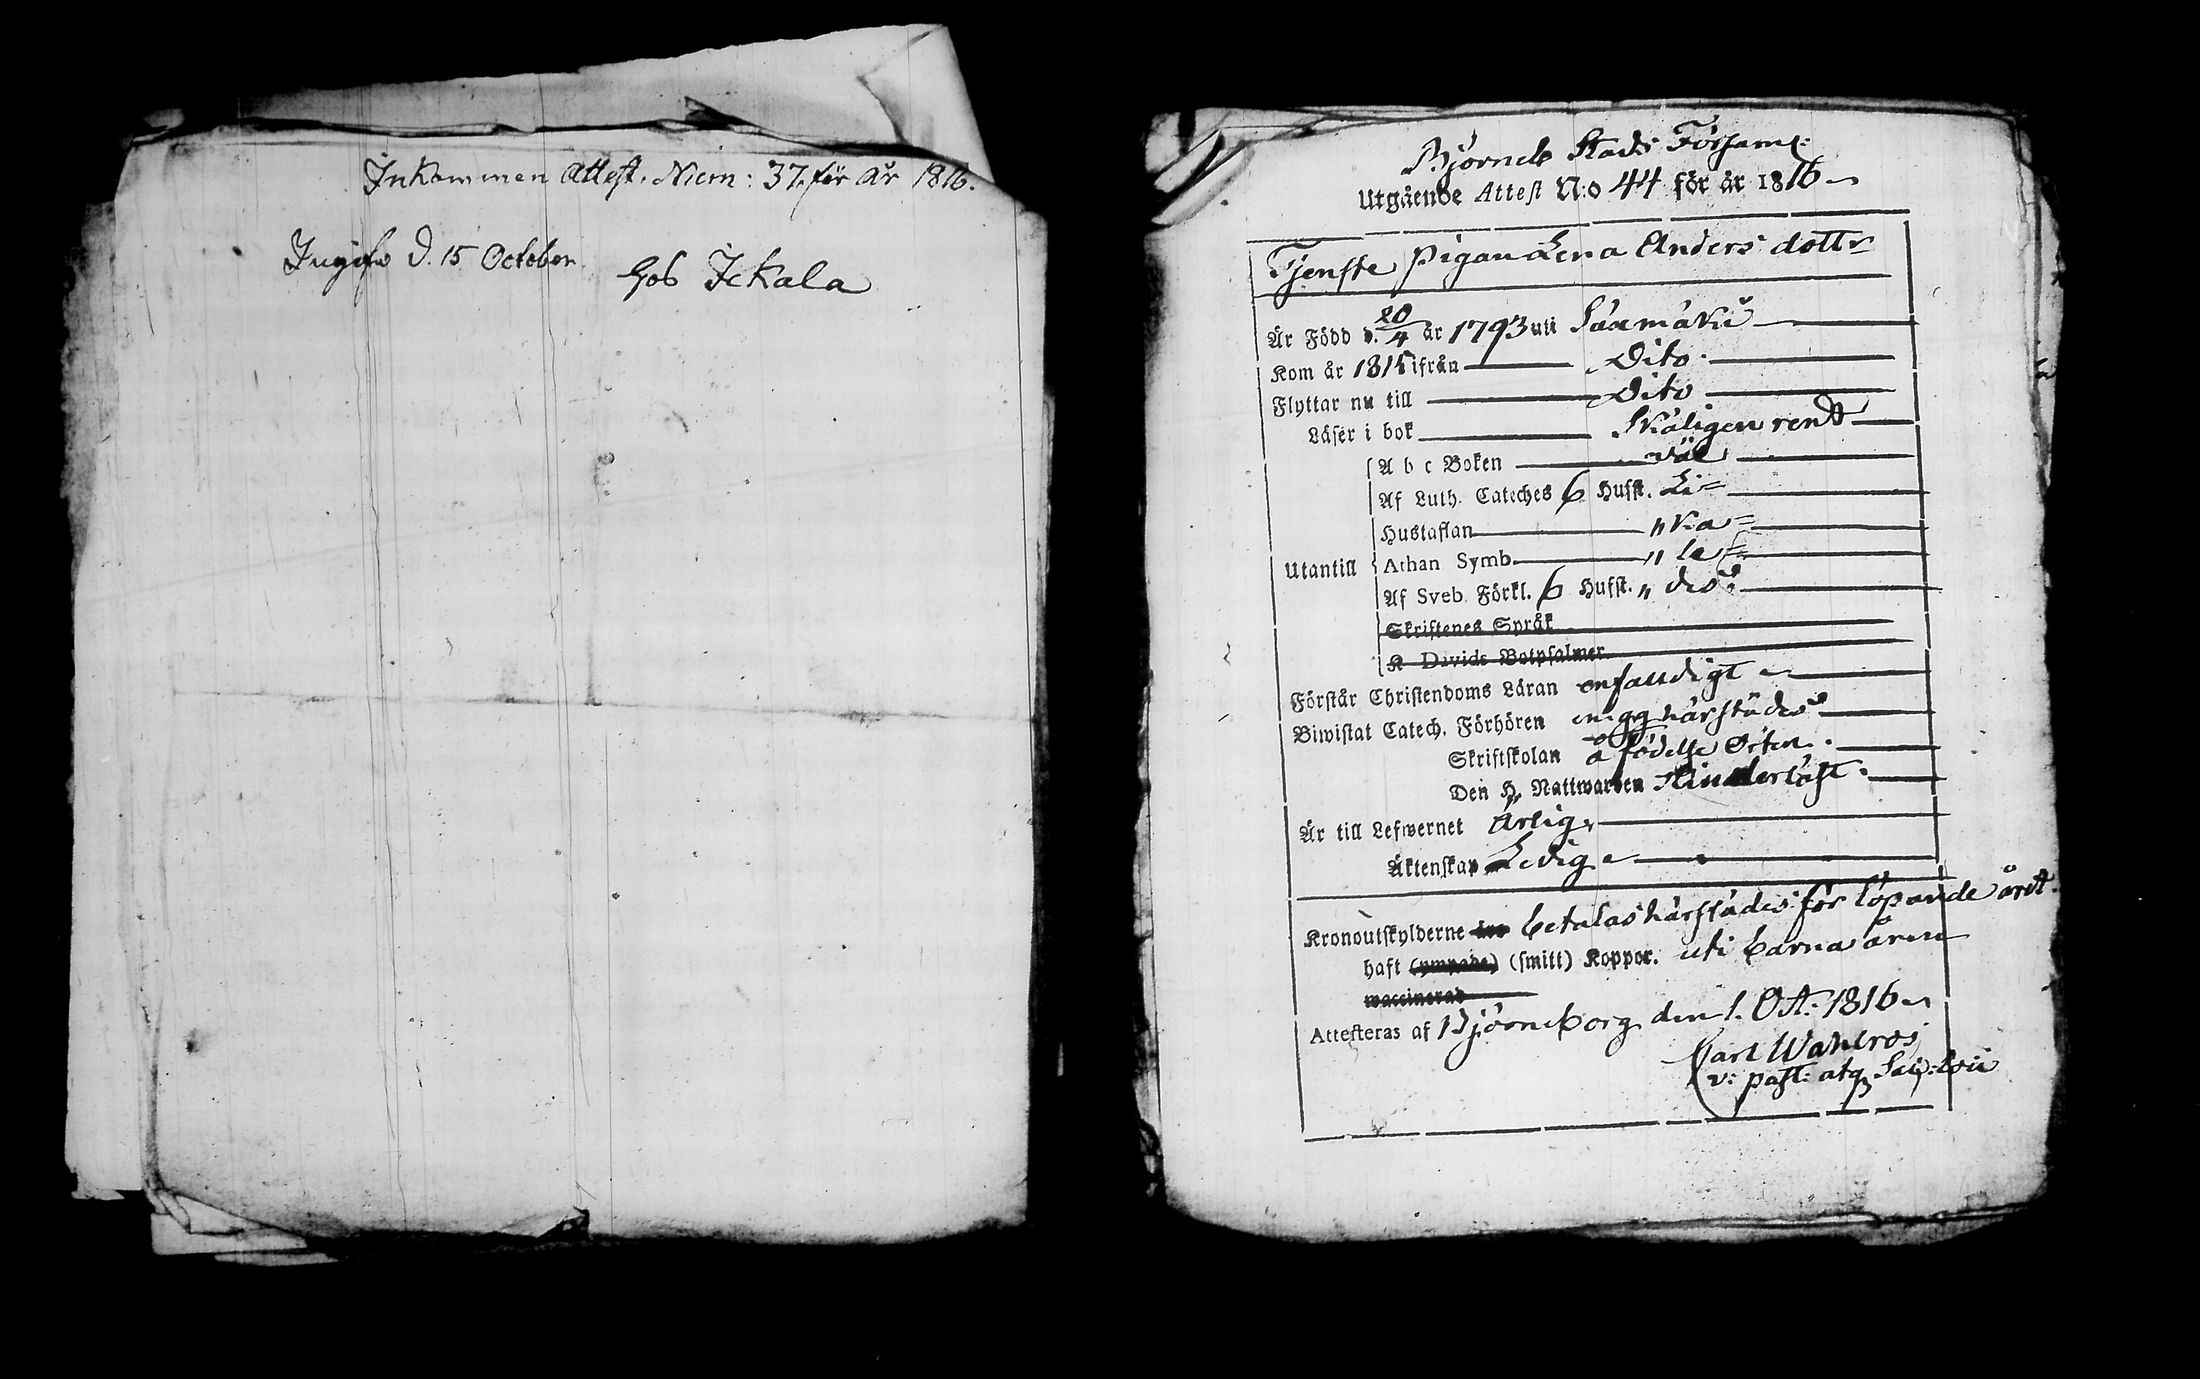 Inkommen Attest, Num: 37. för År 1816.
Ingifv d. 15 October.
hos Ickala
Björneb Stads Församl:
Utgående Attest N:o 44 för år 1816
Tjenste pigan Lena Anders dottr
Är Född d. 20/4 år 1793 uti Säxmäki
Kom år 1815 ifrån Dito.
Flyttar nu till Dito
Läser i bok Skäligen rent
A b c Boken väl
Af Luth. Cateches 6 Hufst. Li=
Hustaflan " ka=
Utantill Athan Symb. " le=
Af Sveb. Förkl. 6 Hufst. " des
Skriftenes Språk
K Davids Botpsalmer
Förstår Christendoms Läran enfaldigt
Biwistat Catech. Förhören härstädes
Skriftskolan å födelse Orten.
Den H. Nattwarden
Är till Lefwernet Ärlig
Äktenskap Ledig
Kronoutskylderne betalas härstädes för löpande året.
haft (ympade) (smitt) Koppor. uti barna åren
waccinerad
Attesteras af Björneborg den 1. Oct. 1816
Carl Wahlros
v: past: atq